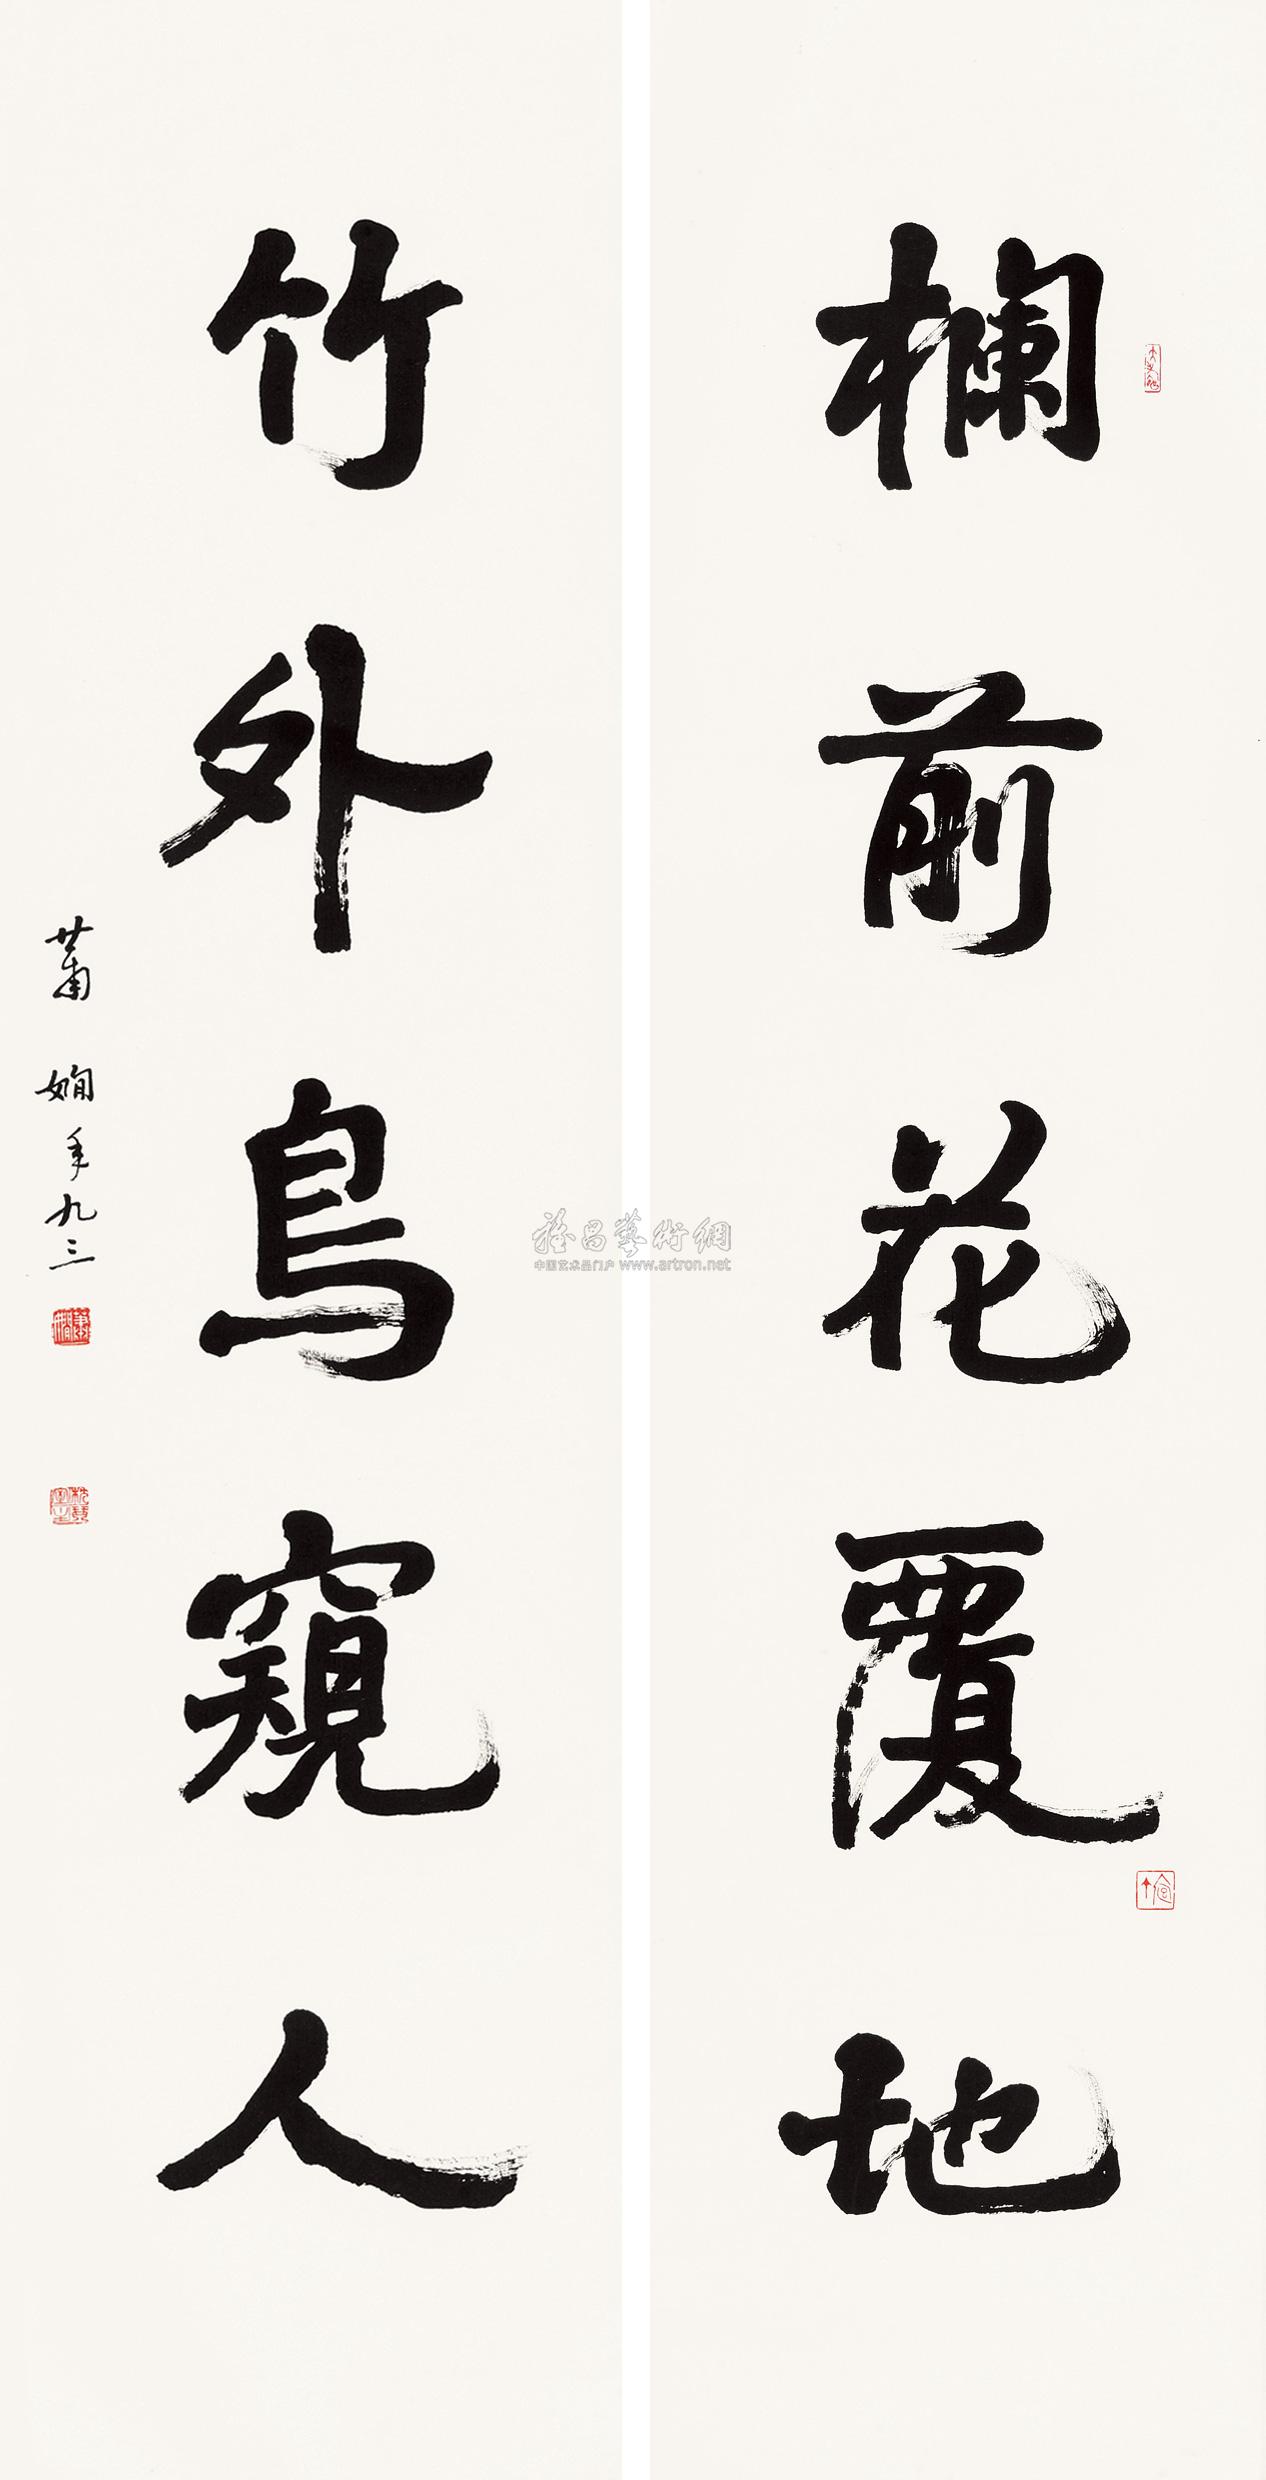 欄前花覆地
竹外鳥窺人
蕭嫻年九三
雅昌藝術網
中国艺术品门户 www.artron.net